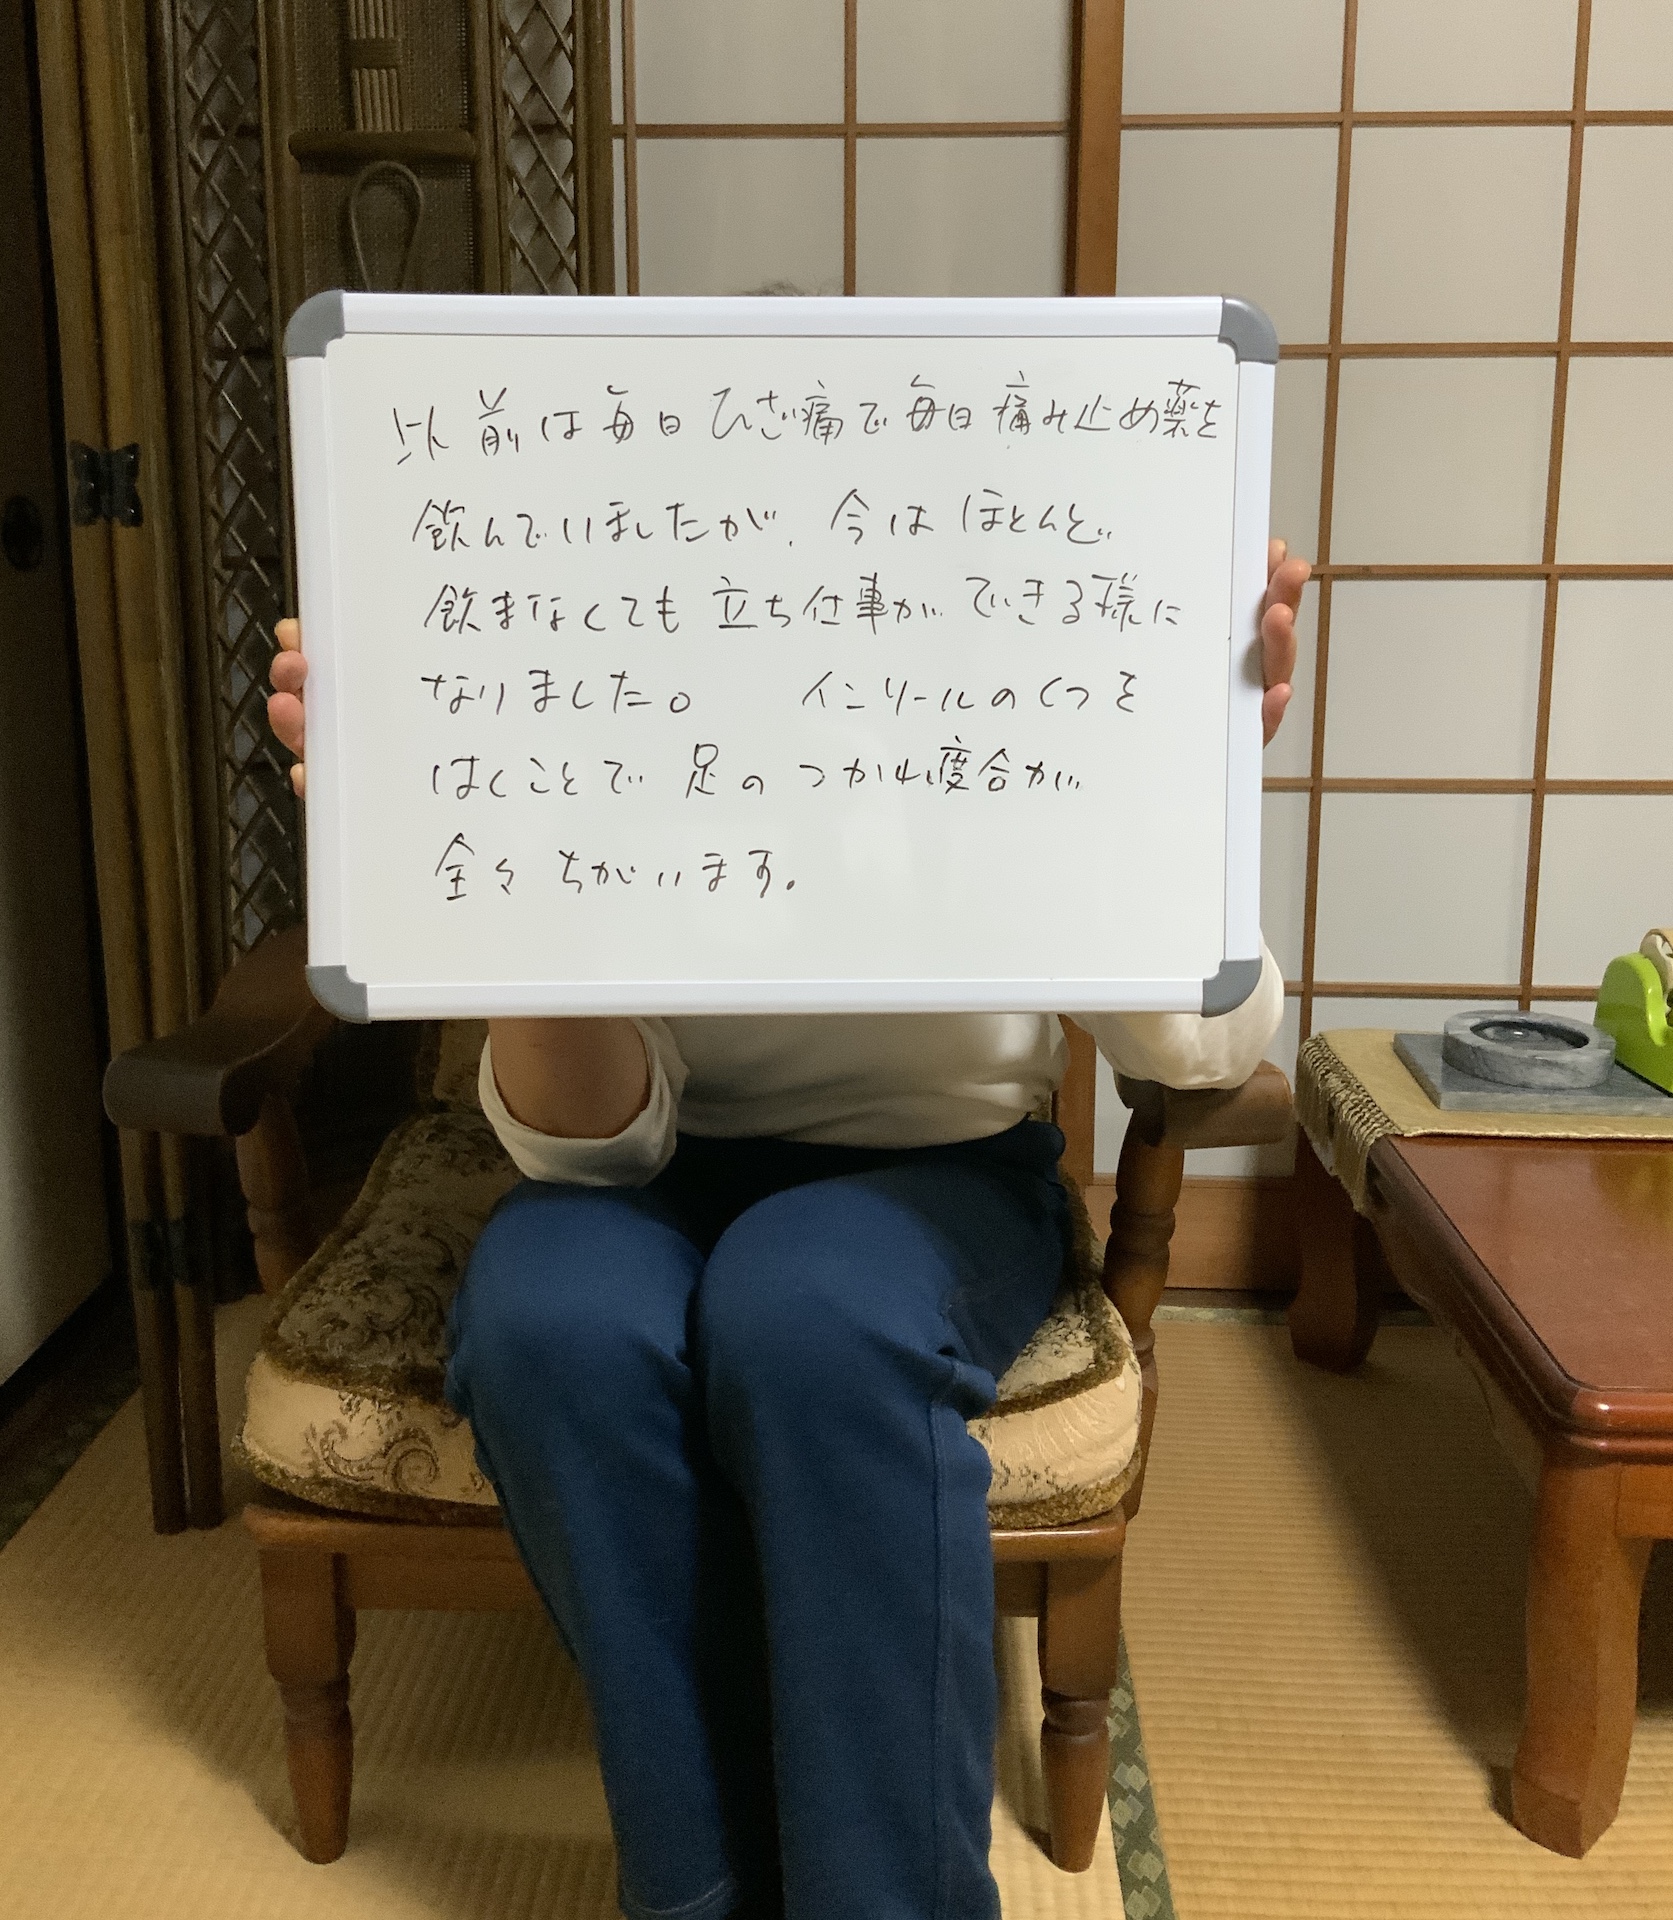 以前は毎日ひざ痛で毎日痛み止め薬を
飲んでいましたが、今はほとんど
飲まなくても立ち仕事ができる様に
なりました。 インソールのくつを
はくことで足のつかれ度合が
全々ちがいます。